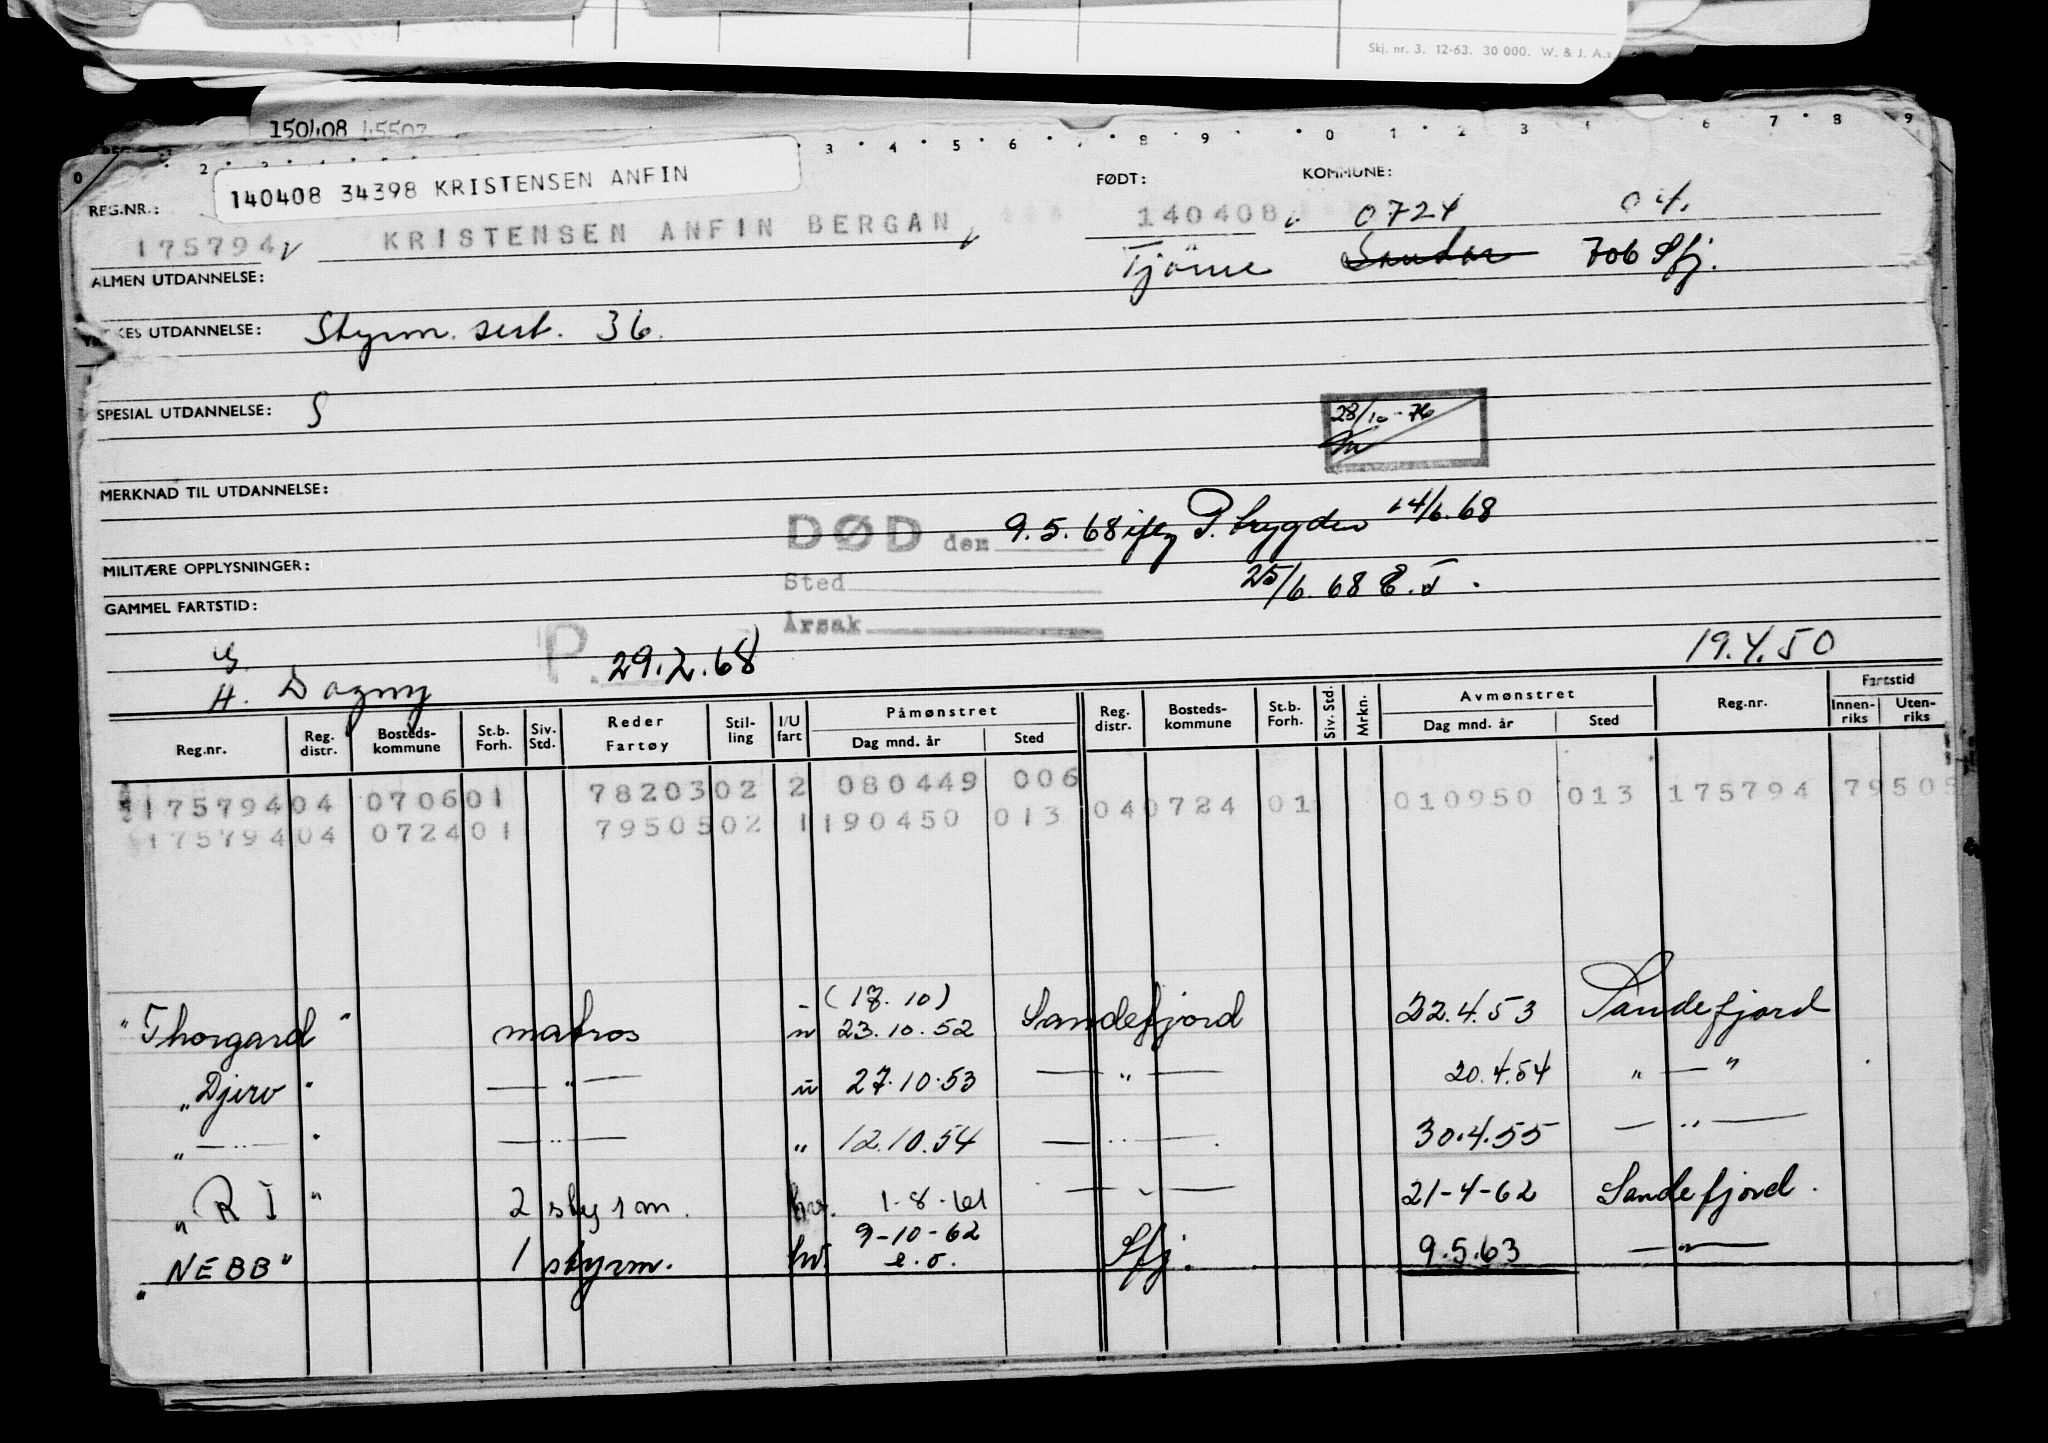 Skj. nr. 3. 12-63. 30 000. W. & J. A.s
150408 45507
0 2 3 4 5 6 8 9 0 1 2 3 6 7 8 9
140408 34398 KRISTENSEN ANFIN
REG.NR.: FØDT: KOMMUNE:
175794 KRISTENSEN ANFIN BERGAN 140408 0724 04.
Tjöme Sandar 706 Sfj.
ALMEN UTDANNELSE:
KES UTDANNELSE: Styrm. sert. 36.
SPESIAL UTDANNELSE: S
28/10-76
MERKNAD TIL UTDANNELSE:
DØD den 9.5.68 iflg P.trygden 14/6.68
MILITÆRE OPPLYSNINGER:
Sted 25/6.68 E.T.
GAMMEL FARTSTID:
Årsak
G. P. 29.2.68 19.4.50
H. Dagny
Reg.nr. Reg. distr. Bosteds-kommune St.b. Forh. Siv. Std. Reder Fartøy Stil-ling I/U fart Påmønstret Dag mnd. år Sted Reg. distr. Bosteds-kommune St.b. Forh. Siv. Std. Mrkn. Avmønstret Dag mnd. år Sted Reg.nr. Fartstid Innen-riks Uten-riks
175794 04 0706 01 78203 02 2 080449 006
04 0724 01 010950 013 175794 79505
175794 04 0724 01 79505 02 1 190450 013
(18.10)
"Thorgard" matros u 23.10.52 Sandefjord 22.4.53 Sandefjord
"Djerv" — " — u 27.10.53 — " — 20.4.54 " — "
" — " — — " — " 12.10.54 — " — 30.4.55 — " —
"R I" 2 styrm. hv. 1-8-61 — " — 21-4-62 Sandefjord.
9-10-62
"NEBB" 1 styrm. hv. e.o. Sfj. 9.5.63 — " —